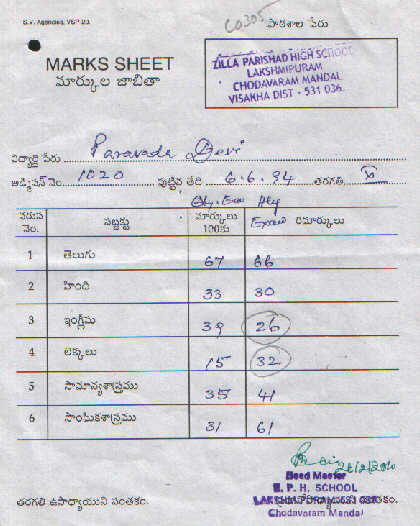 S.V. Agencies, VSP-20.
C0305
పాఠశాల పేరు
MARKS SHEET
మార్కుల జాబితా
ZILLA PARISHAD HIGH SCHOOL
LAKSHMIPURAM
CHODAVARAM MANDAL
VISAKHA DIST - 531 036.
విద్యార్థి పేరు Paravada Devi
అడ్మిషన్ నెం. 1020 పుట్టిన తేది 6.6.94 తరగతి
వరుస నెం. సబ్జక్టు మార్కులు 100కు Exam రిమార్కులు
1 తెలుగు 67 66
2 హింది 33 30
3 ఇంగ్లీషు 39 26
4 లెక్కలు 15 32
5 సామాన్యశాస్త్రము 35 41
6 సాంఘికశాస్త్రము 31 61
తరగతి ఉపాధ్యాయుని సంతకం.
Head Master
Z. P. H. SCHOOL
LAKSHMIPURAM-531 036
Chodavaram Mandal